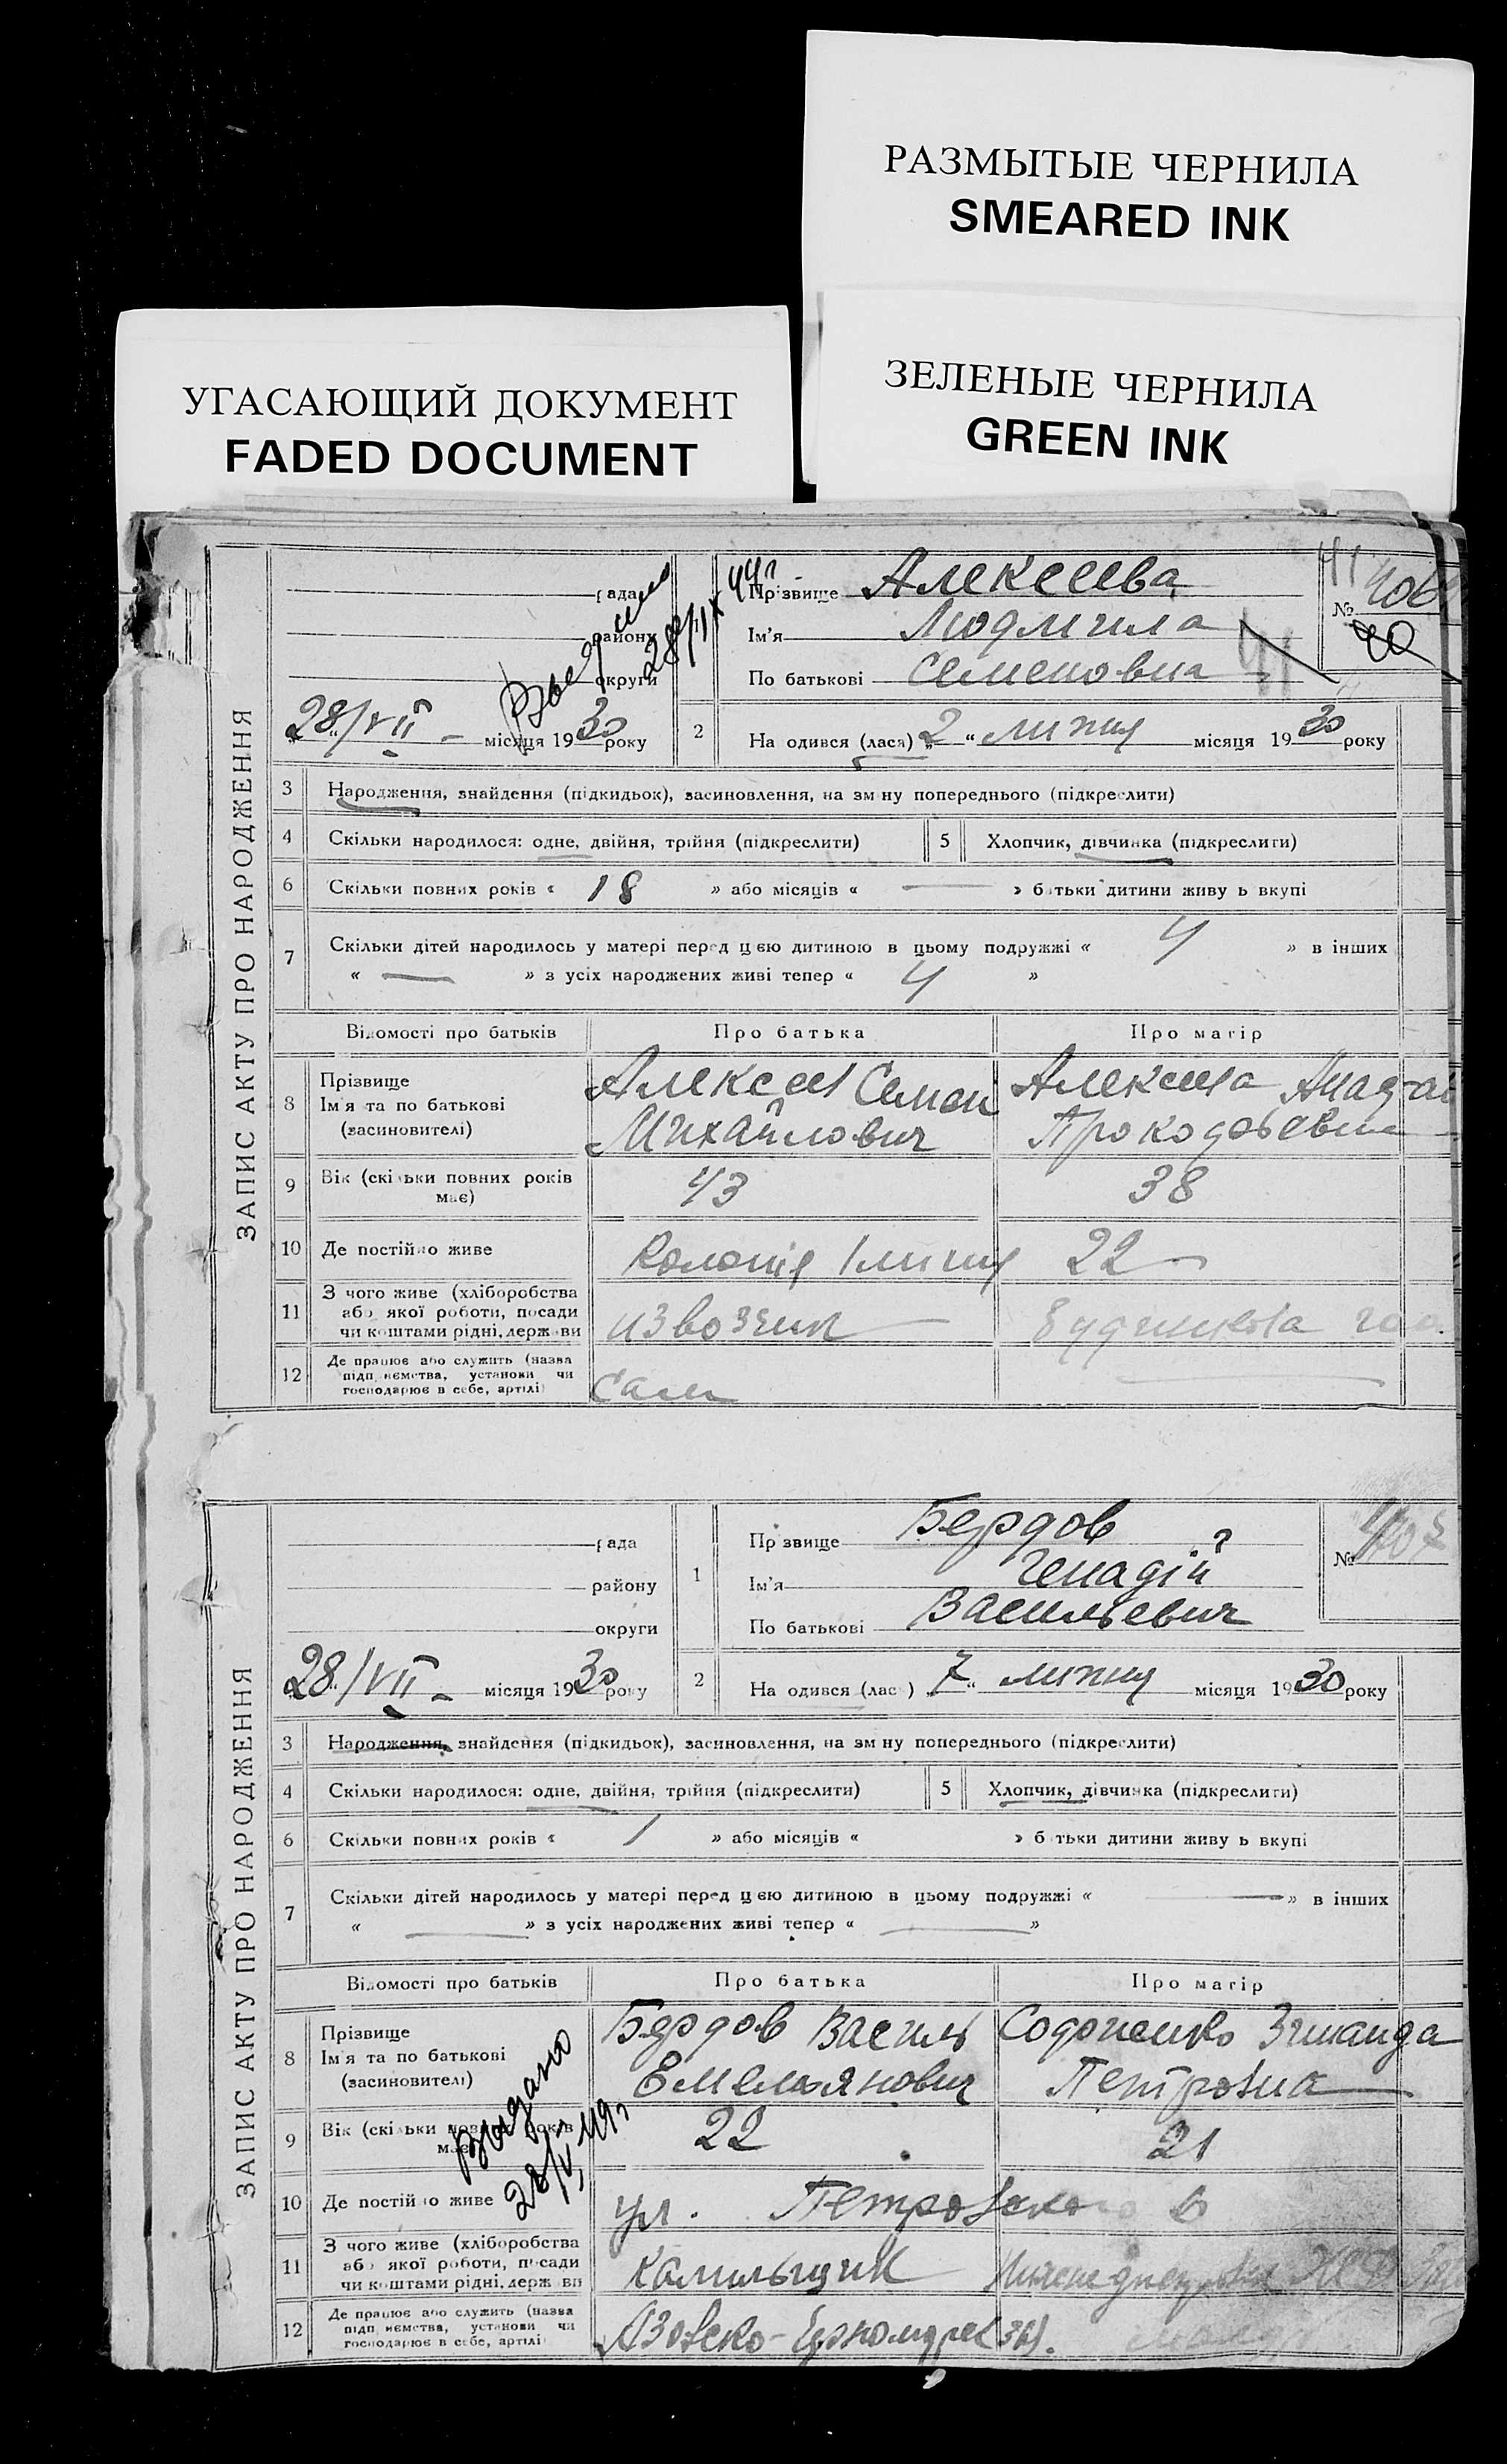 РАЗМЫТЫЕ ЧЕРНИЛА
SMEARED INK
ЗЕЛЕНЫЕ ЧЕРНИЛА
GREEN INK
УГАСАЮЩИЙ ДОКУМЕНТ
FADED DOCUMENT
ЗАПИС АКТУ ПРО НАРОДЖЕННЯ
рада
району
округи
28/VII – місяця 1930 року
28/IX 44г.
Прізвище Алексеева
Ім'я Людмила
По батькові Семеновна
№ 406
41
40
41
2 На одився (лася) „2“ липня місяця 1930 року
3 Народження, знайдення (підкидьок), засиновлення, на зм ну попереднього (підкреслити)
4 Скільки народилося: одне, двійня, трійня (підкреслити)
5 Хлопчик, дівчинка (підкреслити)
6 Скільки повних років « 18 » або місяців « — » батьки дитини живу ь вкупі
7 Скільки дітей народилось у матері перед цією дитиною в цьому подружжі « 4 » в інших
« — » з усіх народжених живі тепер « 4 »
Відомості про батьків Про батька Про матір
8 Прізвище Ім'я та по батькові (засиновителі)
Алексеев Семен Михайлович
Алексеева
9 Вік (скільки повних років має) 43 38
10 Де постійно живе
22
11 З чого живе (хліборобства або якої роботи, посади чи коштами рідні, держави
извозчик
12 Де працює або служить (назва підприємства, установи чи господарює в себе, артілі)
сам
ЗАПИС АКТУ ПРО НАРОДЖЕННЯ
рада
району
округи
28/VII – місяця 1930 року
1 Прізвище Бердов
Ім'я Генадій
По батькові Васильевич
№ 407
2 На одився (лас ) „7“ липня місяця 1930 року
3 Народження, знайдення (підкидьок), засиновлення, на зм ну попереднього (підкреслити)
4 Скільки народилося: одне, двійня, трійня (підкреслити)
5 Хлопчик, дівчинка (підкреслити)
6 Скільки повних років « 1 » або місяців « » батьки дитини живу ь вкупі
7 Скільки дітей народилось у матері перед цією дитиною в цьому подружжі « — » в інших
« — » з усіх народжених живі тепер « — »
Відомості про батьків Про батька Про матір
8 Прізвище Ім'я та по батькові (засиновителі)
Бердов Василь Емельянович
Зинаида Петровна
Выдано
28/V 49г.
9 Вік (скільки повних років має) 22 21
10 Де постійно живе
ул. Петровского 6
11 З чого живе (хліборобства або якої роботи, посади чи коштами рідні, держави
12 Де працює або служить (назва підприємства, установи чи господарює в себе, артілі